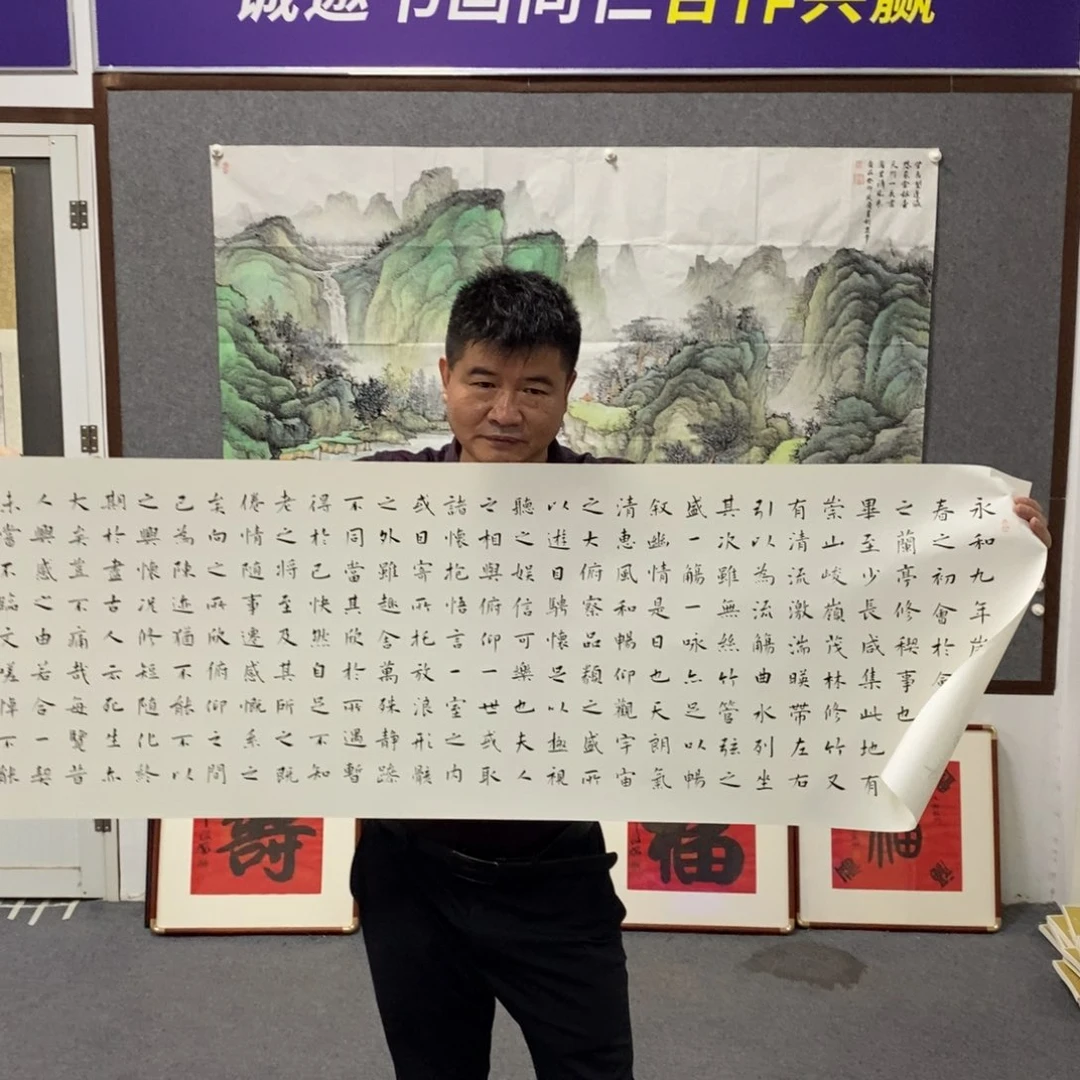 诚邀书画同仁合作共赢
永和九年
春之初會於會
之蘭亭修稧事也
畢至少長咸集此地有
崇山峻嶺茂林修竹又
有清流激湍暎帶左右
引以為流觴曲水列坐
其次雖無絲竹管弦之
盛一觴一咏亦足以暢
叙幽情是日也天朗氣
清惠風和暢仰觀宇宙
之大俯察品類之盛所
以遊目騁懷足以極視
聽之娛信可樂也夫人
之相與俯仰一世或取
諸懷抱悟言一室之内
或因寄所托放浪形骸
之外雖趣舍萬殊静躁
不同當其欣於所遇暫
得於己快然自足不知
老之將至及其所之既
倦情隨事遷感慨系之
矣向之所欣俯仰之間
已為陳迹猶不能不以
之興懷况修短隨化終
期於盡古人云死生亦
大矣豈不痛哉每覽昔
人興感之由若合一契
未嘗不臨文嗟悼不能
壽
福
福